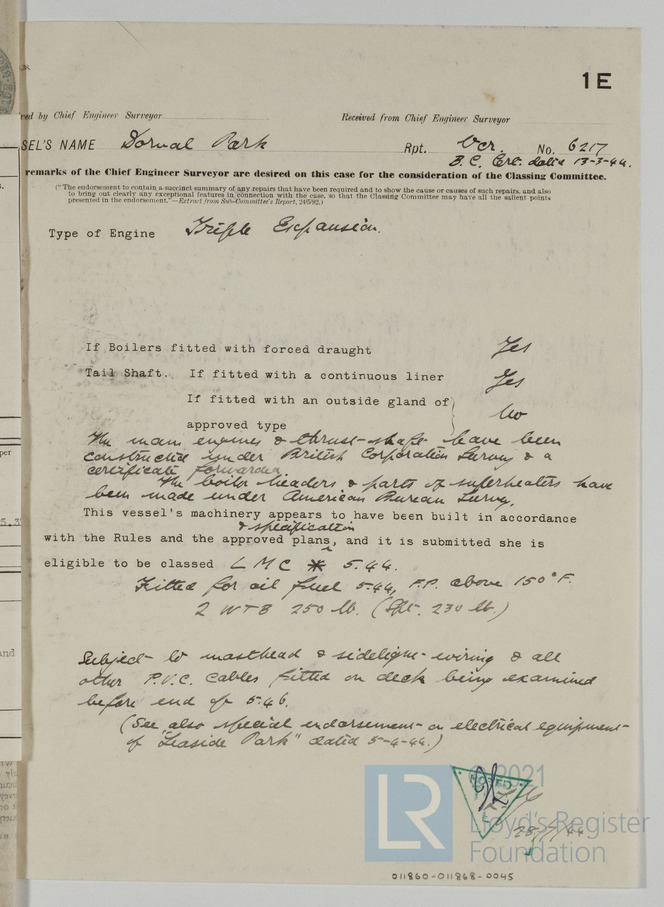 1E
ed by Chief Engineer Surveyor
Received from Chief Engineer Surveyor
SEL'S NAME Dorval Park Rpt. Vcr. No. 6217
B.C. Cert. dated 13-3-44.
remarks of the Chief Engineer Surveyor are desired on this case for the consideration of the Classing Committee.
("The endorsement to contain a succinct summary of any repairs that have been required and to show the cause or causes of such repairs, and also
to bring out clearly any exceptional features in connection with the case, so that the Classing Committee may have all the salient points
presented in the endorsement."—Extract from Sub-Committee's Report, 24/5/92.)
Type of Engine Triple Expansion.
If Boilers fitted with forced draught Yes
Tail Shaft. If fitted with a continuous liner Yes
If fitted with an outside gland of
approved type No
The main engines & thrust-shaft have been
constructed under British Corporation Survey & a
certificate forwarded.
The boiler headers & parts of superheaters have
been made under American Bureau Survey.
This vessel's machinery appears to have been built in accordance
& specification
with the Rules and the approved plans, and it is submitted she is
eligible to be classed L M C * 5.44.
Fitted for oil fuel 5.44, F.P. above 150°F.
2 WTB 250 lb. (Spt. 230 lb.)
Subject to masthead & sidelight wiring & all
other P.V.C. cables fitted on deck being examined
before end of 5.46.
(See also special endorsement on electrical equipment
of "Seaside Park" dated 5-4-44.)
NOTED
28/7/44
© 2021
LR
Lloyd's Register
Foundation
011860-011868-0045